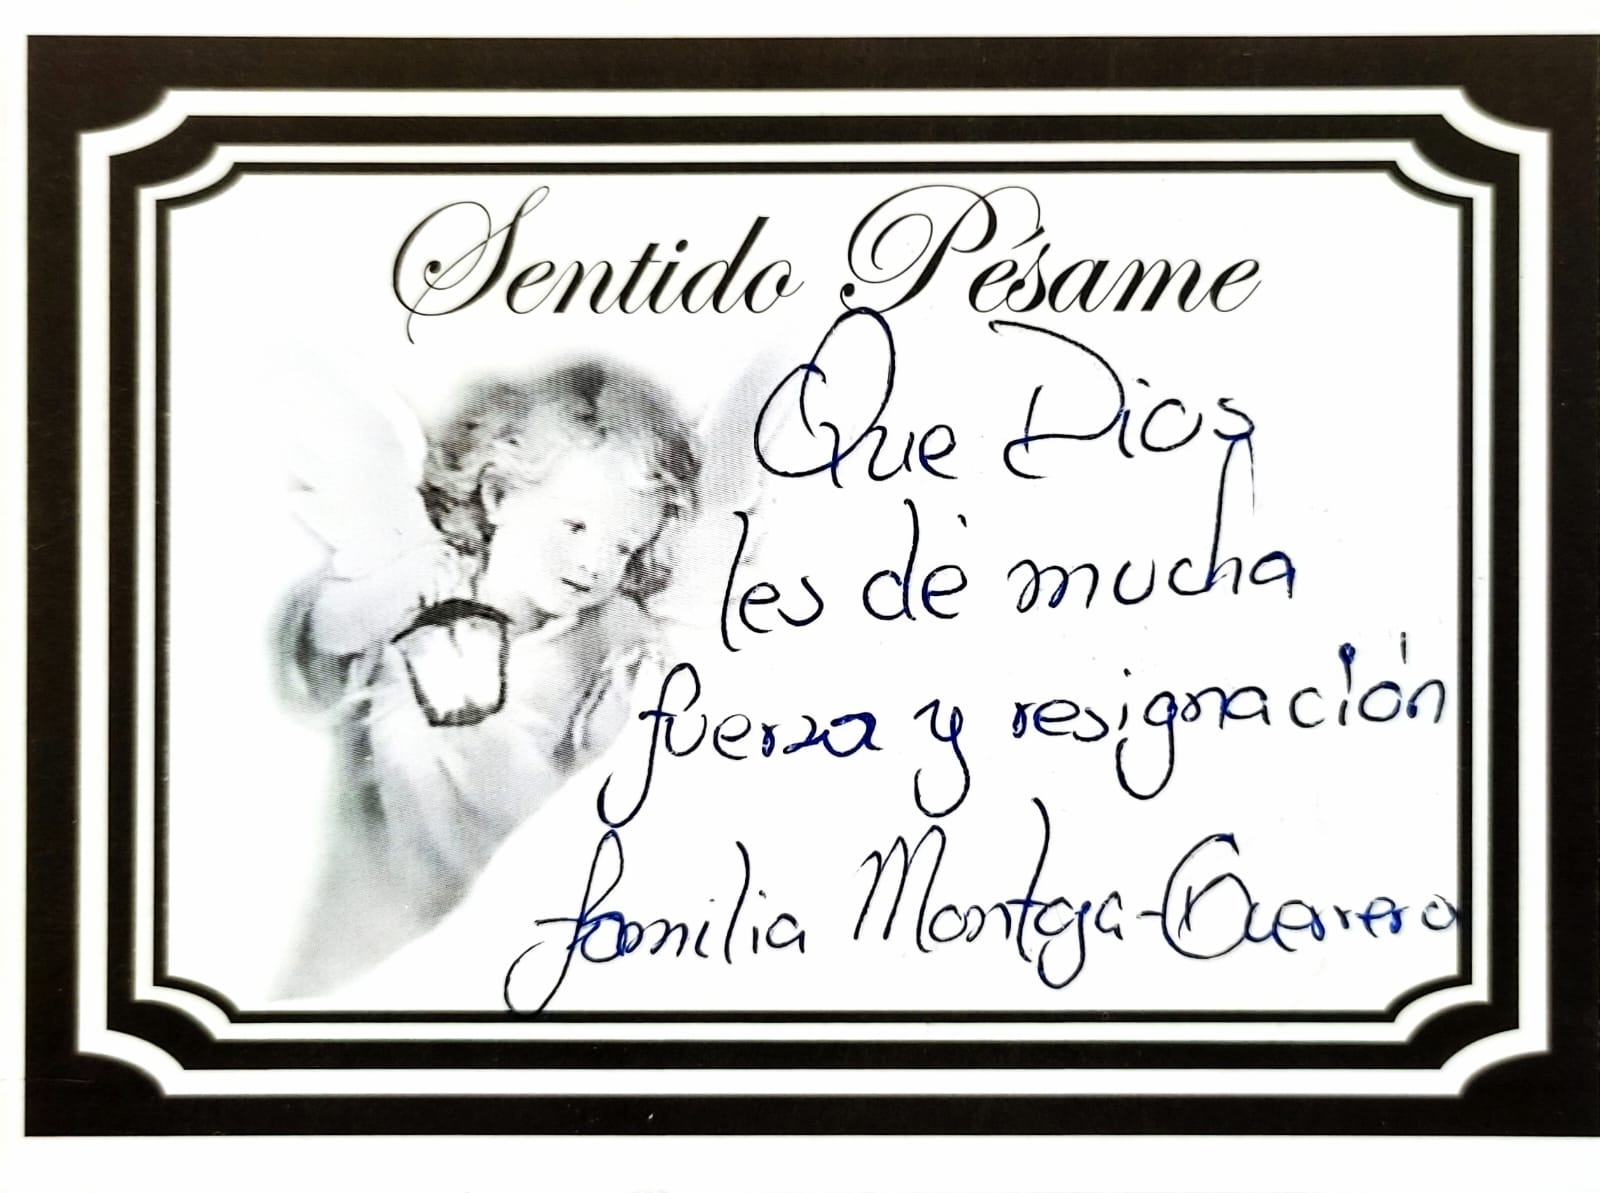 Sentido Pésame
Que Dios
les dé mucha
fuerza y resignación
familia Montoya-Guerrero